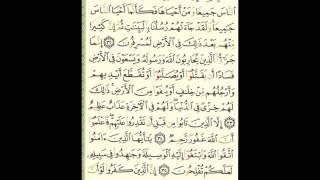 ٱلنَّاسَ جَمِيعًا وَمَنْ أَحْيَاهَا فَكَأَنَّمَآ أَحْيَا ٱلنَّاسَ
جَمِيعًا وَلَقَدْ جَآءَتْهُمْ رُسُلُنَا بِٱلْبَيِّنَٰتِ ثُمَّ إِنَّ كَثِيرًا
مِّنْهُم بَعْدَ ذَٰلِكَ فِى ٱلْأَرْضِ لَمُسْرِفُونَ ٣٢ إِنَّمَا
جَزَٰٓؤُا۟ ٱلَّذِينَ يُحَارِبُونَ ٱللَّهَ وَرَسُولَهُۥ وَيَسْعَوْنَ فِى ٱلْأَرْضِ
فَسَادًا أَن يُقَتَّلُوٓا۟ أَوْ يُصَلَّبُوٓا۟ أَوْ تُقَطَّعَ أَيْدِيهِمْ
وَأَرْجُلُهُم مِّنْ خِلَٰفٍ أَوْ يُنفَوْا۟ مِنَ ٱلْأَرْضِ ذَٰلِكَ
لَهُمْ خِزْىٌ فِى ٱلدُّنْيَا وَلَهُمْ فِى ٱلْءَاخِرَةِ عَذَابٌ عَظِيمٌ
٣٣ إِلَّا ٱلَّذِينَ تَابُوا۟ مِن قَبْلِ أَن تَقْدِرُوا۟ عَلَيْهِمْ فَٱعْلَمُوٓا۟
أَنَّ ٱللَّهَ غَفُورٌ رَّحِيمٌ ٣٤ يَٰٓأَيُّهَا ٱلَّذِينَ ءَامَنُوا۟
ٱتَّقُوا۟ ٱللَّهَ وَٱبْتَغُوٓا۟ إِلَيْهِ ٱلْوَسِيلَةَ وَجَٰهِدُوا۟ فِى سَبِيلِهِۦ
لَعَلَّكُمْ تُفْلِحُونَ ٣٥ إِنَّ ٱلَّذِينَ كَفَرُوا۟ لَوْ أَنَّ